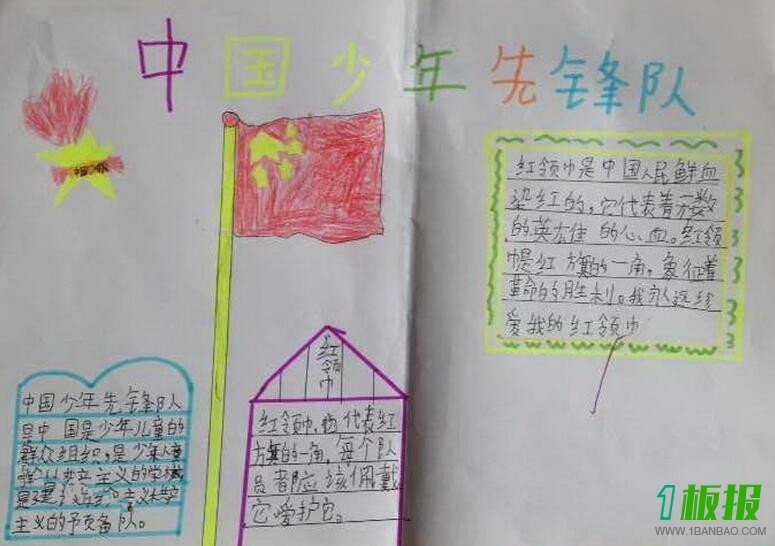 中国少年先锋队
红领巾是中国人民鲜血
染红的，它代表着无数
的英雄 的心血。红领
巾是红 旗的一角。象征着
革命的胜利。我 远
爱我的红领巾
红领巾
红领巾 代表红
旗的一角，每个队
员都应该佩戴
它爱护它。
中国少年先锋队队
是中 国是少年儿童的
群众组织，是少年儿童
共产主义的学校
是建 主义 共产
主义的予 备队。
1板报
WWW.1BANBAO.COM